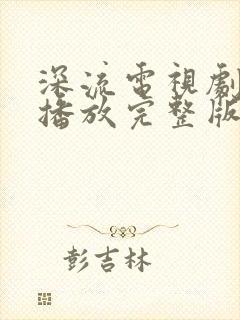 深流電視劇
播放完整版
彭吉林